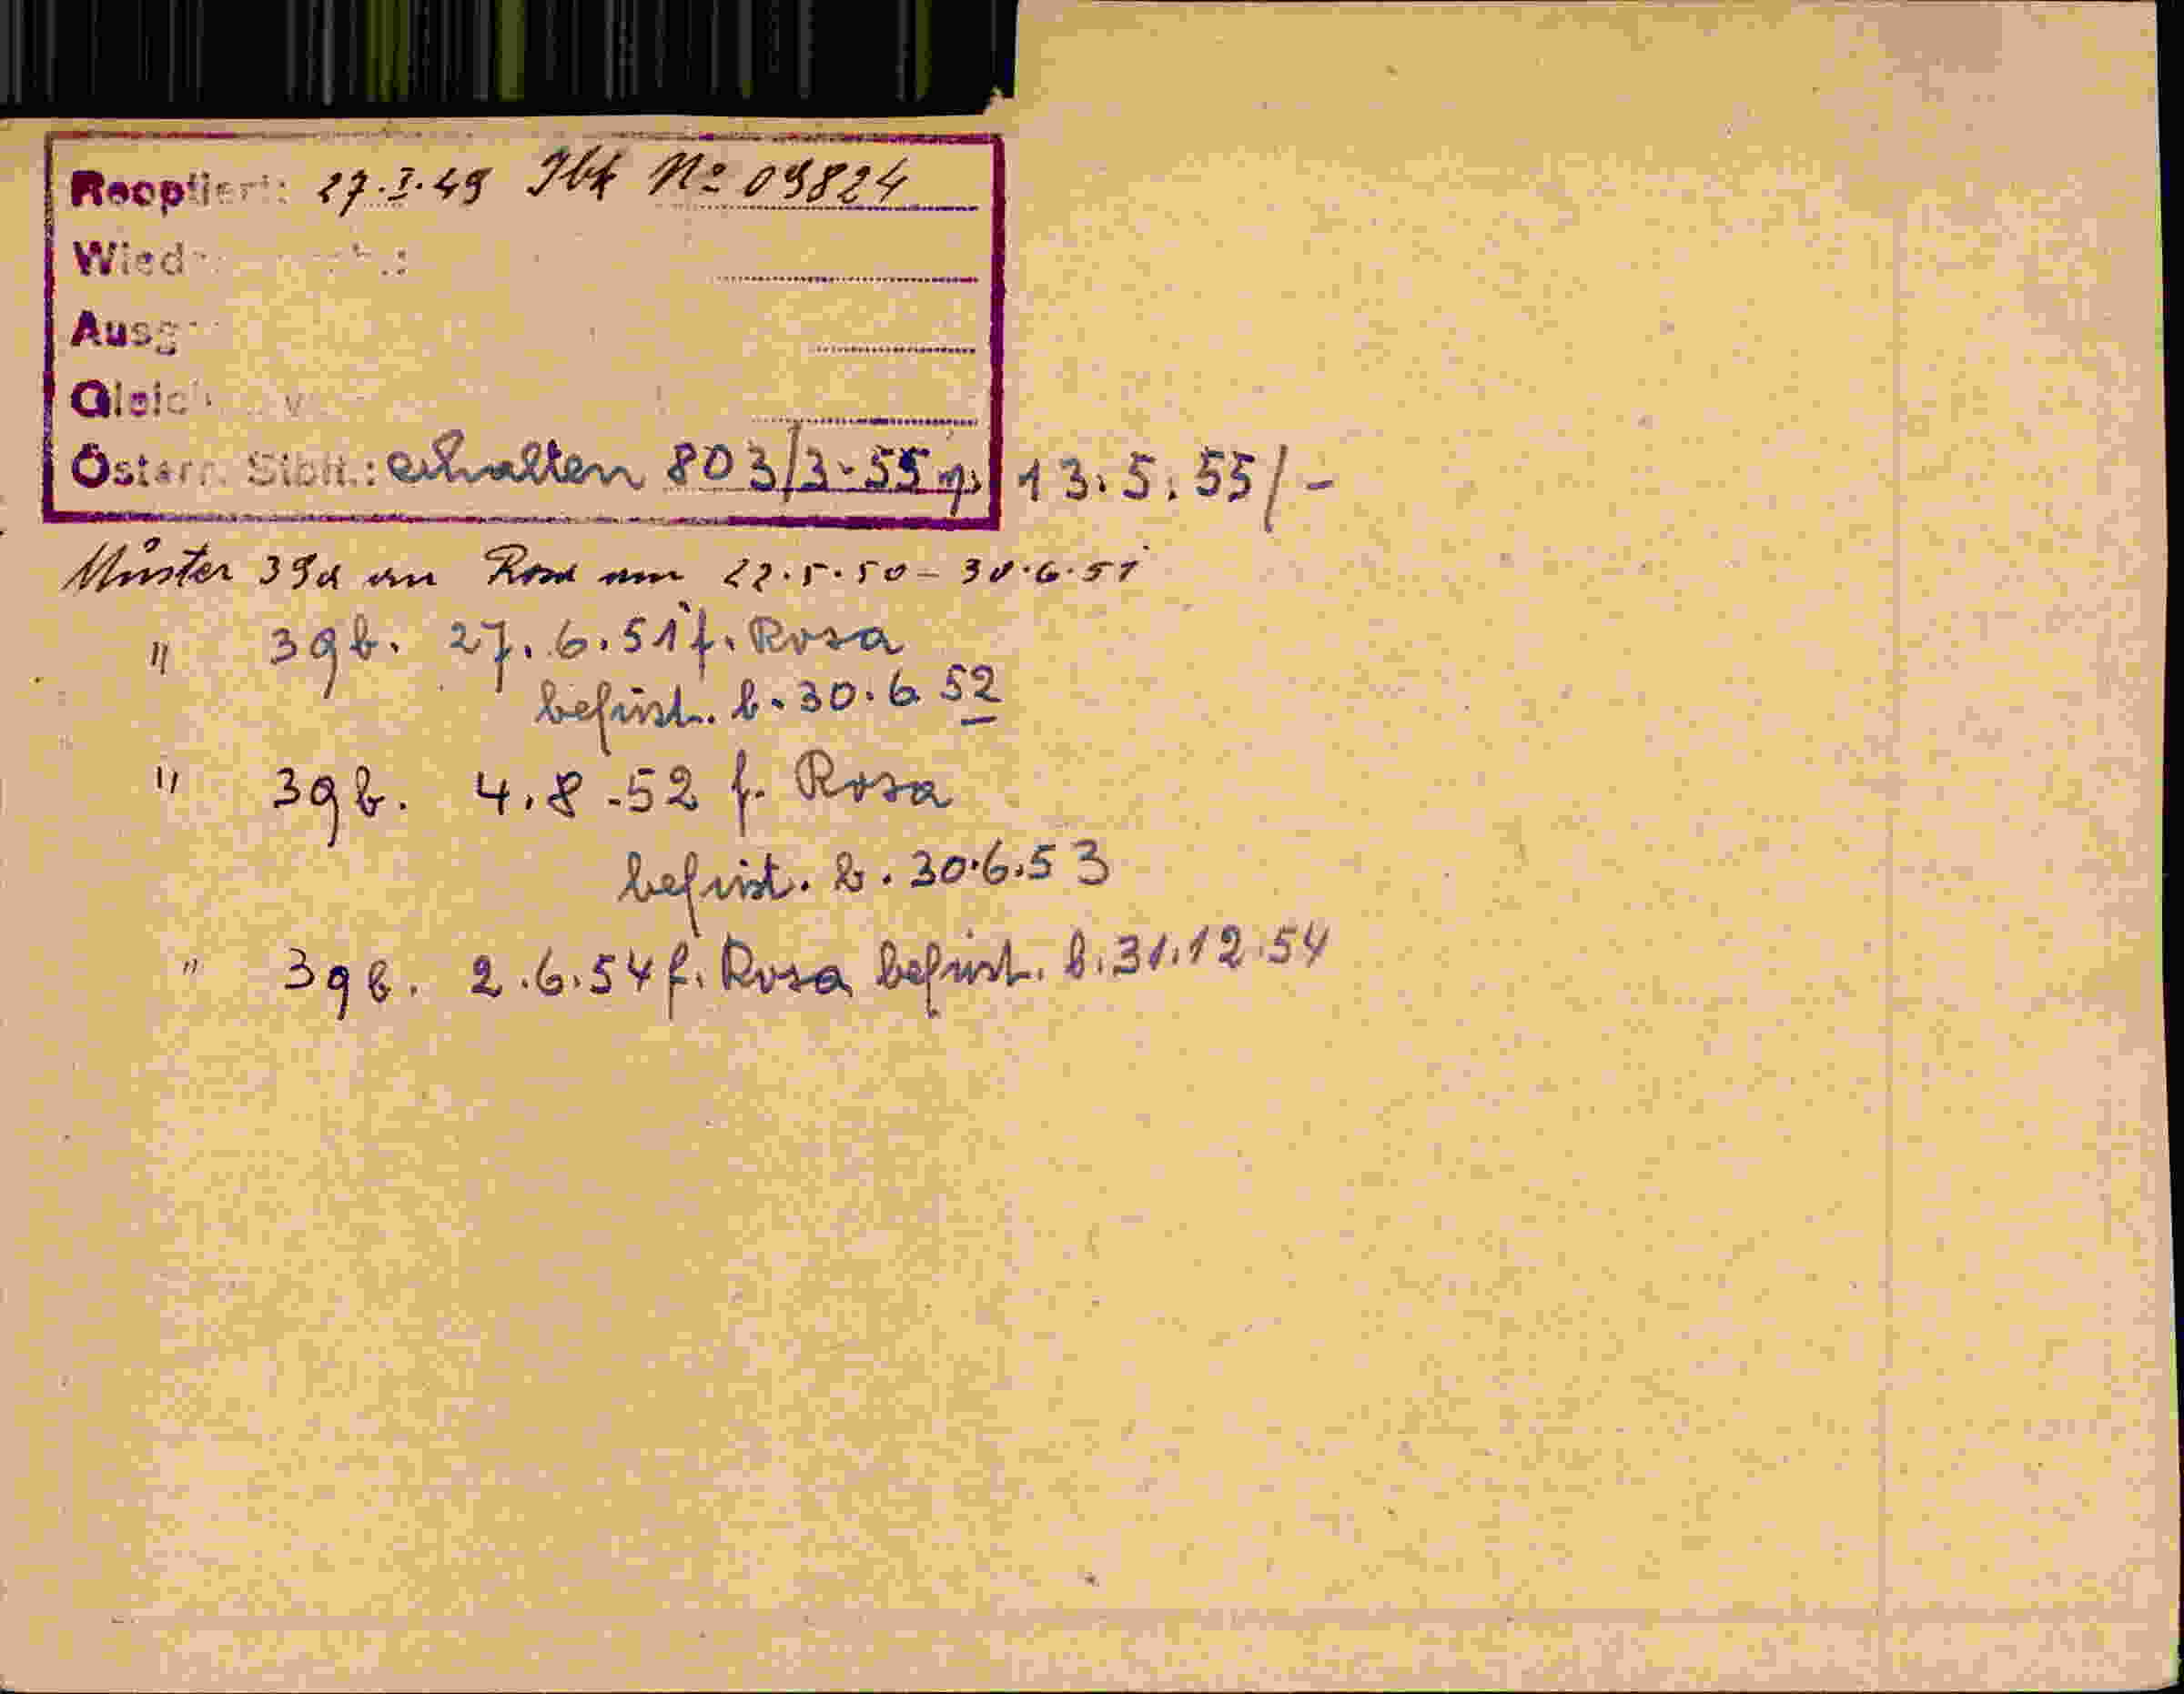 Reoptiert: 27.I.49 Ibk No 09824
Wied
Ausg
Gleich
Österr. Stbit.: erhalten 803/3-55 13.5.55/-
Muster 39a an Rosa am 22.5.50 - 30.6.51
" 39b. 27.6.51 f. Rosa
befrist. b. 30.6.52
" 39b. 4.8.52 f. Rosa
befrist. b. 30.6.53
" 39b. 2.6.54 f. Rosa befrist. b. 31.12.54